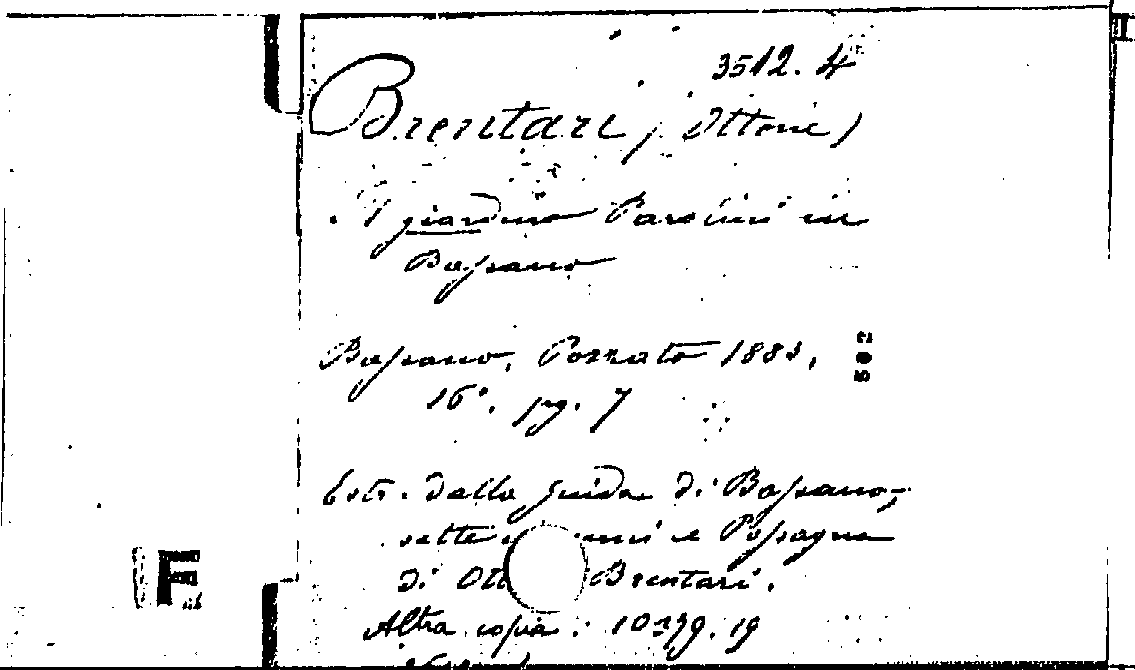 3512. 4
Brentari, (Ottone)
Il giardino Parolini in
Bassano
Bassano, Pozzato 1881,
16°. pg. 7
Estr. dalla guida di Bassano,
sette e Possagno
di Ott Brentari.
Altra copia: 10379. 19
F